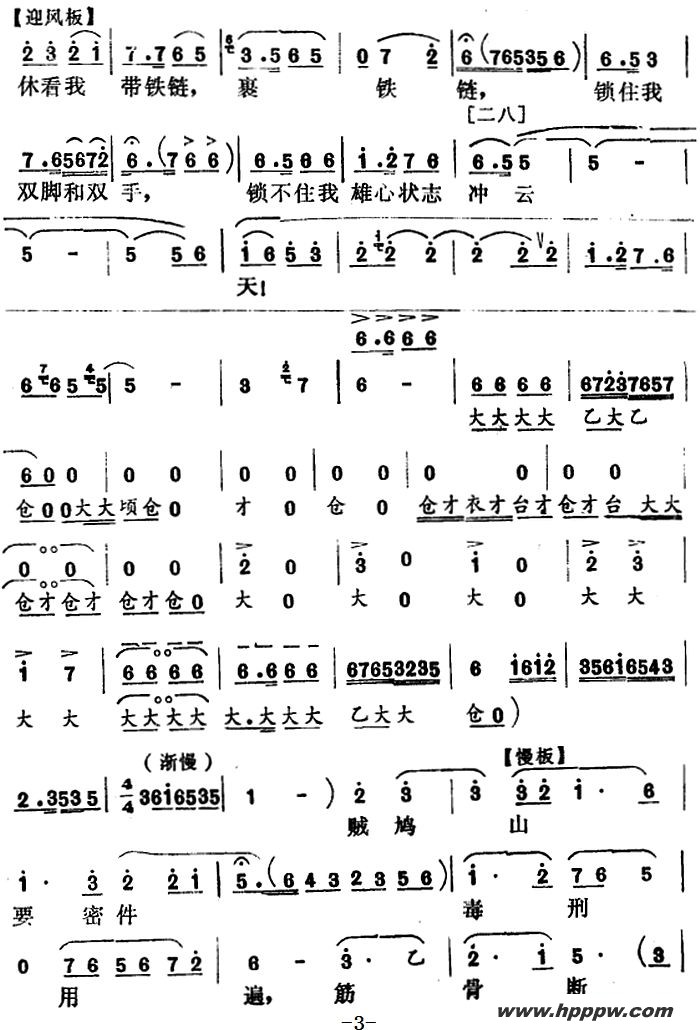 【迎风板】
2 3 2 1 7.7 6 5 6 3.5 6 5 0 7 2 6 (765356) 6.5 3
休看我 带铁链, 裹 铁 链, 锁住我
[二八]
7.65672 6.(7 6 6) 6.5 6 6 1.2 7 6 6.5 5 5 -
双脚和双 手, 锁不住我 雄心状志 冲 云
5 - 5 5 6 1 6 5 3 2 1 2 2 2 2 2 1.2 7.6
天!
6.6 6 6
6 7 6 5 4 5 5 - 3 2 7 6 - 6 6 6 6 67237657
大大大大 乙大乙
6 0 0 0 0 0 0 0 0 0 0 0 0
仓00大大顷仓0 才 0 仓 0 仓才衣才台才仓才台 大大
0 0 0 0 2 0 3 0 1 0 2 3
仓才仓才 仓才仓0 大 0 大 0 大 0 大 大
1 7 6 6 6 6 6.6 6 6 67653235 6 1612 35616543
大 大 大大大大 大.大大大 乙大大 仓0)
(渐慢) 【慢板】
2.3535 4/4 3616535 1 - ) 2 3 3 3 2 1 · 6
贼鸠 山
1 · 3 2 2 1 5.(6 4 3 2 3 5 6) 1 · 2 7 6 5
要 密件 毒 刑
0 7 6 5 6 7 2 6 - 3 · 乙 2 · 1 5 · (3
用 遍, 筋 骨 断
-3-
www.hpppw.com